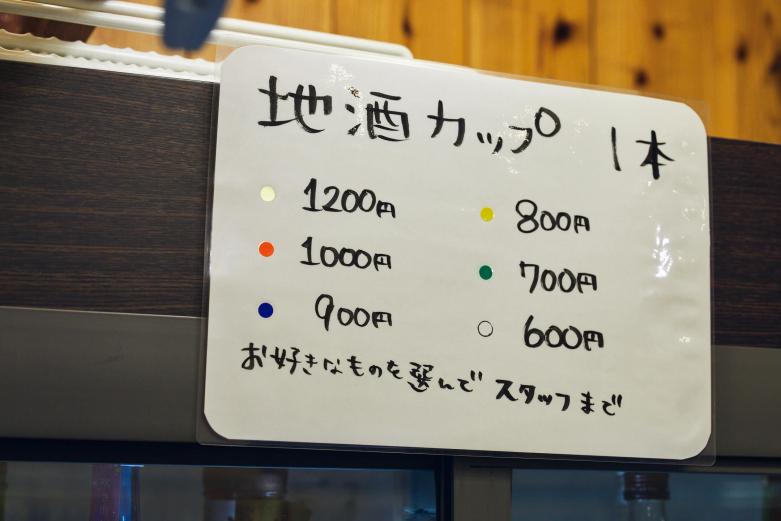 地酒カップ 1本
1200円 800円
1000円 700円
900円 600円
お好きなものを選んで スタッフまで